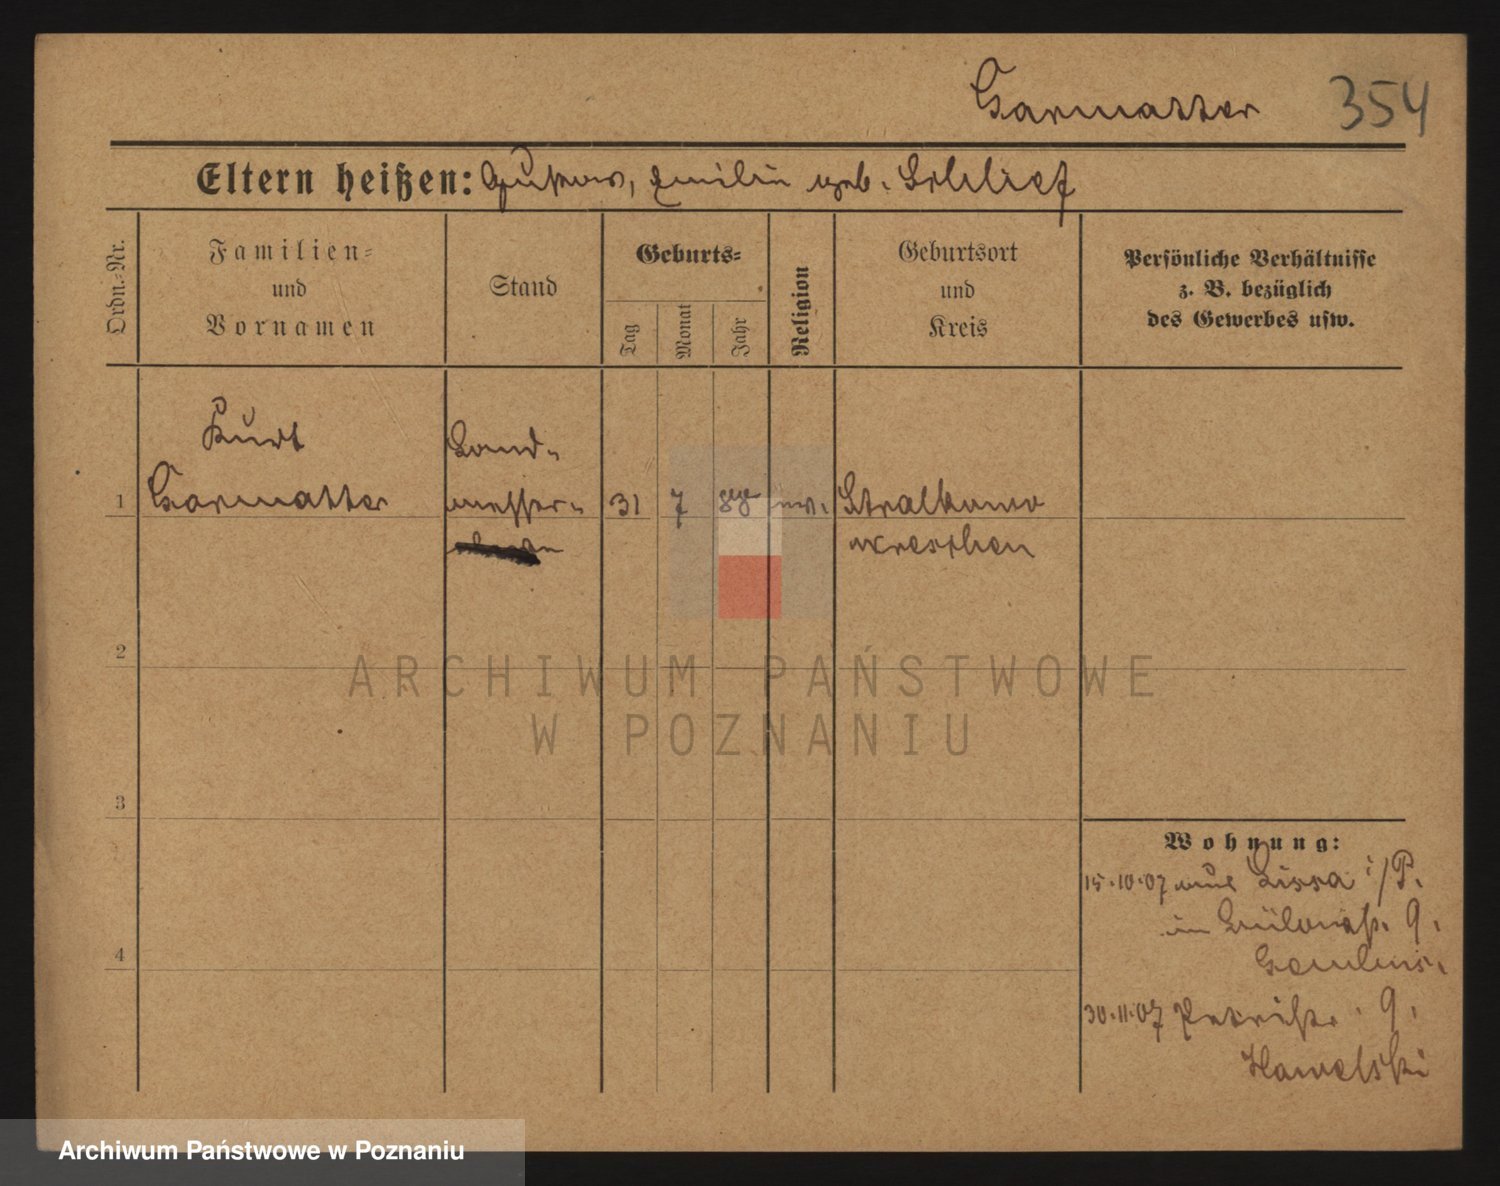 Garmatter 354
Eltern heißen: Gustav, Emilie geb. Schlief
Ordn.-Nr.
Familien-
und
Vornamen
Stand
Geburts-
Tag
Monat
Jahr
Religion
Geburtsort
und
Kreis
Persönliche Verhältnisse
z. B. bezüglich
des Gewerbes usw.
Kurt
Garmatter
Land-
messer-
1
31
7
88
ev.
Stralkowo
Wreschen
2
3
4
Wohnung:
15.10.07 aus Lissa i/P.
30.11.07 Petristr. 9.
Hawelski
ARCHIWUM PAŃSTWOWE
W POZNANIU
Archiwum Państwowe w Poznaniu